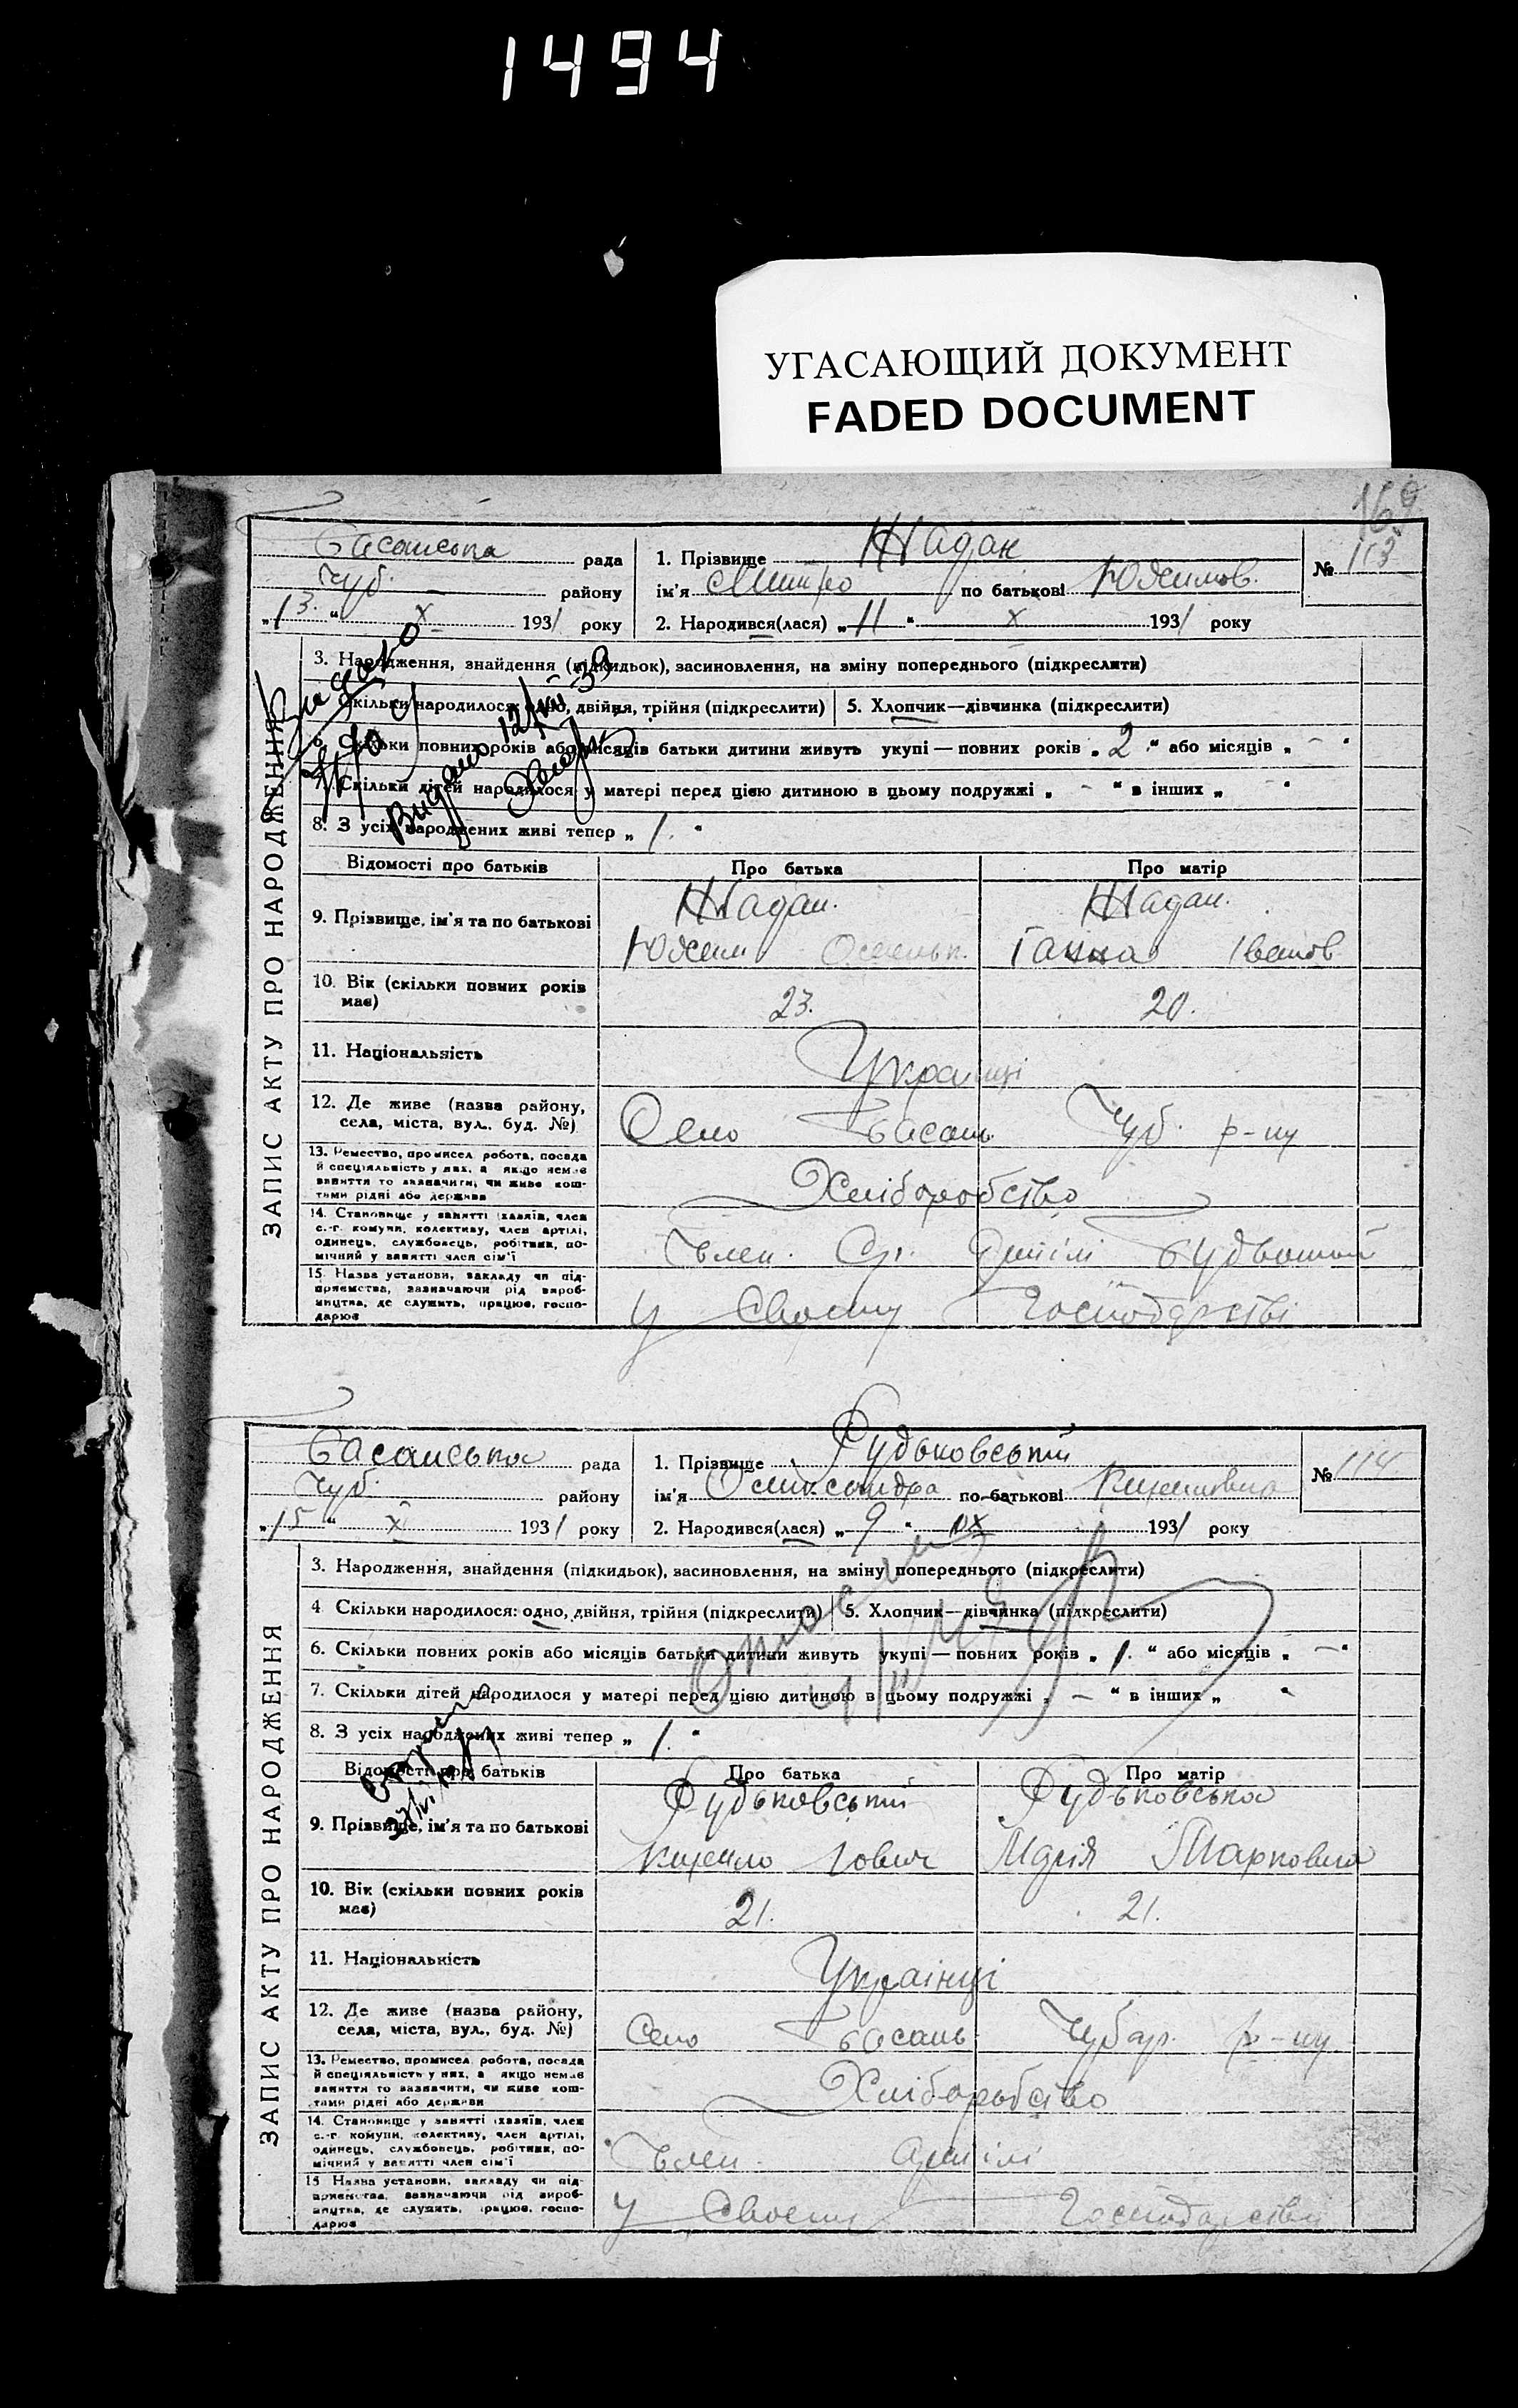 1494
УГАСАЮЩИЙ ДОКУМЕНТ
FADED DOCUMENT
113
Басанська рада
Чуб. району
„13.“ X 1931 року
1. Прізвище Жадан
ім'я Дмитро по батькові Юхимов.
№ 113
2. Народився(лася) „11“ X 1931 року
ЗАПИС АКТУ ПРО НАРОДЖЕННЯ
3. Народження, знайдення (підкидьок), засиновлення, на зміну попереднього (підкреслити)
4. Скільки народилося: одно, двійня, трійня (підкреслити) 5. Хлопчик—дівчинка (підкреслити)
6. Скільки повних років або місяців батьки дитини живуть укупі — повних років „2“ або місяців „–“
7. Скільки дітей народилося у матері перед цією дитиною в цьому подружжі „–“ в інших „ “
8. З усіх народжених живі тепер „1.“
Видано 12/VII-39
Відомості про батьків Про батька Про матір
9. Прізвище, ім'я та по батькові Жадан. Жадан.
Юхим Ганна Іванов
10. Вік (скільки повних років має) 23. 20.
11. Національність Українці
12. Де живе (назва району, села, міста, вул., буд. №) Село Басань Чуб. р-ну
13. Ремество, промисел, робота, посада й спеціяльність у них, а якщо немає заняття то зазначити, чи живе коштами рідні або держави Хліборобство
14. Становище у занятті (хазяїн, член с.-г. комуни, колективу, член артілі, одинець, службовець, робітник, помічний у занятті член сім'ї Член Артілі
15. Назва установи, закладу чи підприємства, зазначаючи рід виробництва, де служить, працює, господарює у своєму господарстві
Басанська рада
Чуб. району
„15“ X 1931 року
1. Прізвище Рудьковській
ім'я Олександра по батькові Кириловна
№ 114
2. Народився(лася) „9“ IX 1931 року
ЗАПИС АКТУ ПРО НАРОДЖЕННЯ
3. Народження, знайдення (підкидьок), засиновлення, на зміну попереднього (підкреслити)
4. Скільки народилося: одно, двійня, трійня (підкреслити) 5. Хлопчик—дівчинка (підкреслити)
6. Скільки повних років або місяців батьки дитини живуть укупі — повних років „1.“ або місяців „–“
7. Скільки дітей народилося у матері перед цією дитиною в цьому подружжі „–“ в інших „ “
8. З усіх народжених живі тепер „1.“
Відомості про батьків Про батька Про матір
9. Прізвище, ім'я та по батькові Рудьковській Рудьковська
Кирило Іович Марія Марковна
10. Вік (скільки повних років має) 21. 21.
11. Національність Українці
12. Де живе (назва району, села, міста, вул., буд. №) Село Басань Чубар. р-ну
13. Ремество, промисел, робота, посада й спеціяльність у них, а якщо немає заняття то зазначити, чи живе коштами рідні або держави Хліборобство
14. Становище у занятті (хазяїн, член с.-г. комуни, колективу, член артілі, одинець, службовець, робітник, помічний у занятті член сім'ї Член артілі
15. Назва установи, закладу чи підприємства, зазначаючи рід виробництва, де служить, працює, господарює у своєму господарстві